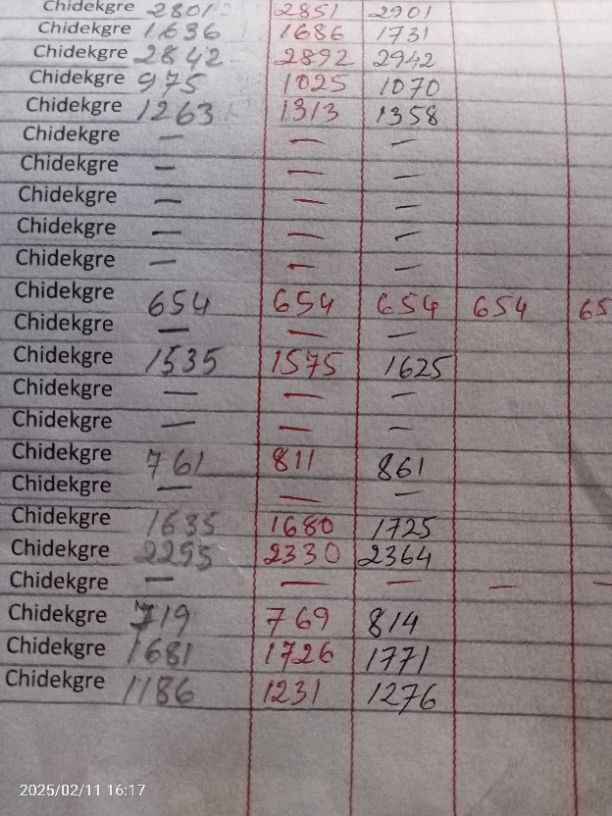 Chidekgre 2801 2851 2901
Chidekgre 1636 1686 1731
Chidekgre 2842 2892 2942
Chidekgre 975 1025 1070
Chidekgre 1263 1313 1358
Chidekgre — — —
Chidekgre — — —
Chidekgre — — —
Chidekgre — — —
Chidekgre — — —
Chidekgre 654 654 654 654 65
Chidekgre — — —
Chidekgre 1535 1575 1625
Chidekgre — — —
Chidekgre — — —
Chidekgre 761 811 861
Chidekgre — — —
Chidekgre 1635 1680 1725
Chidekgre 2295 2330 2364
Chidekgre — — — — —
Chidekgre 719 769 814
Chidekgre 1681 1726 1771
Chidekgre 1186 1231 1276
2025/02/11 16:17